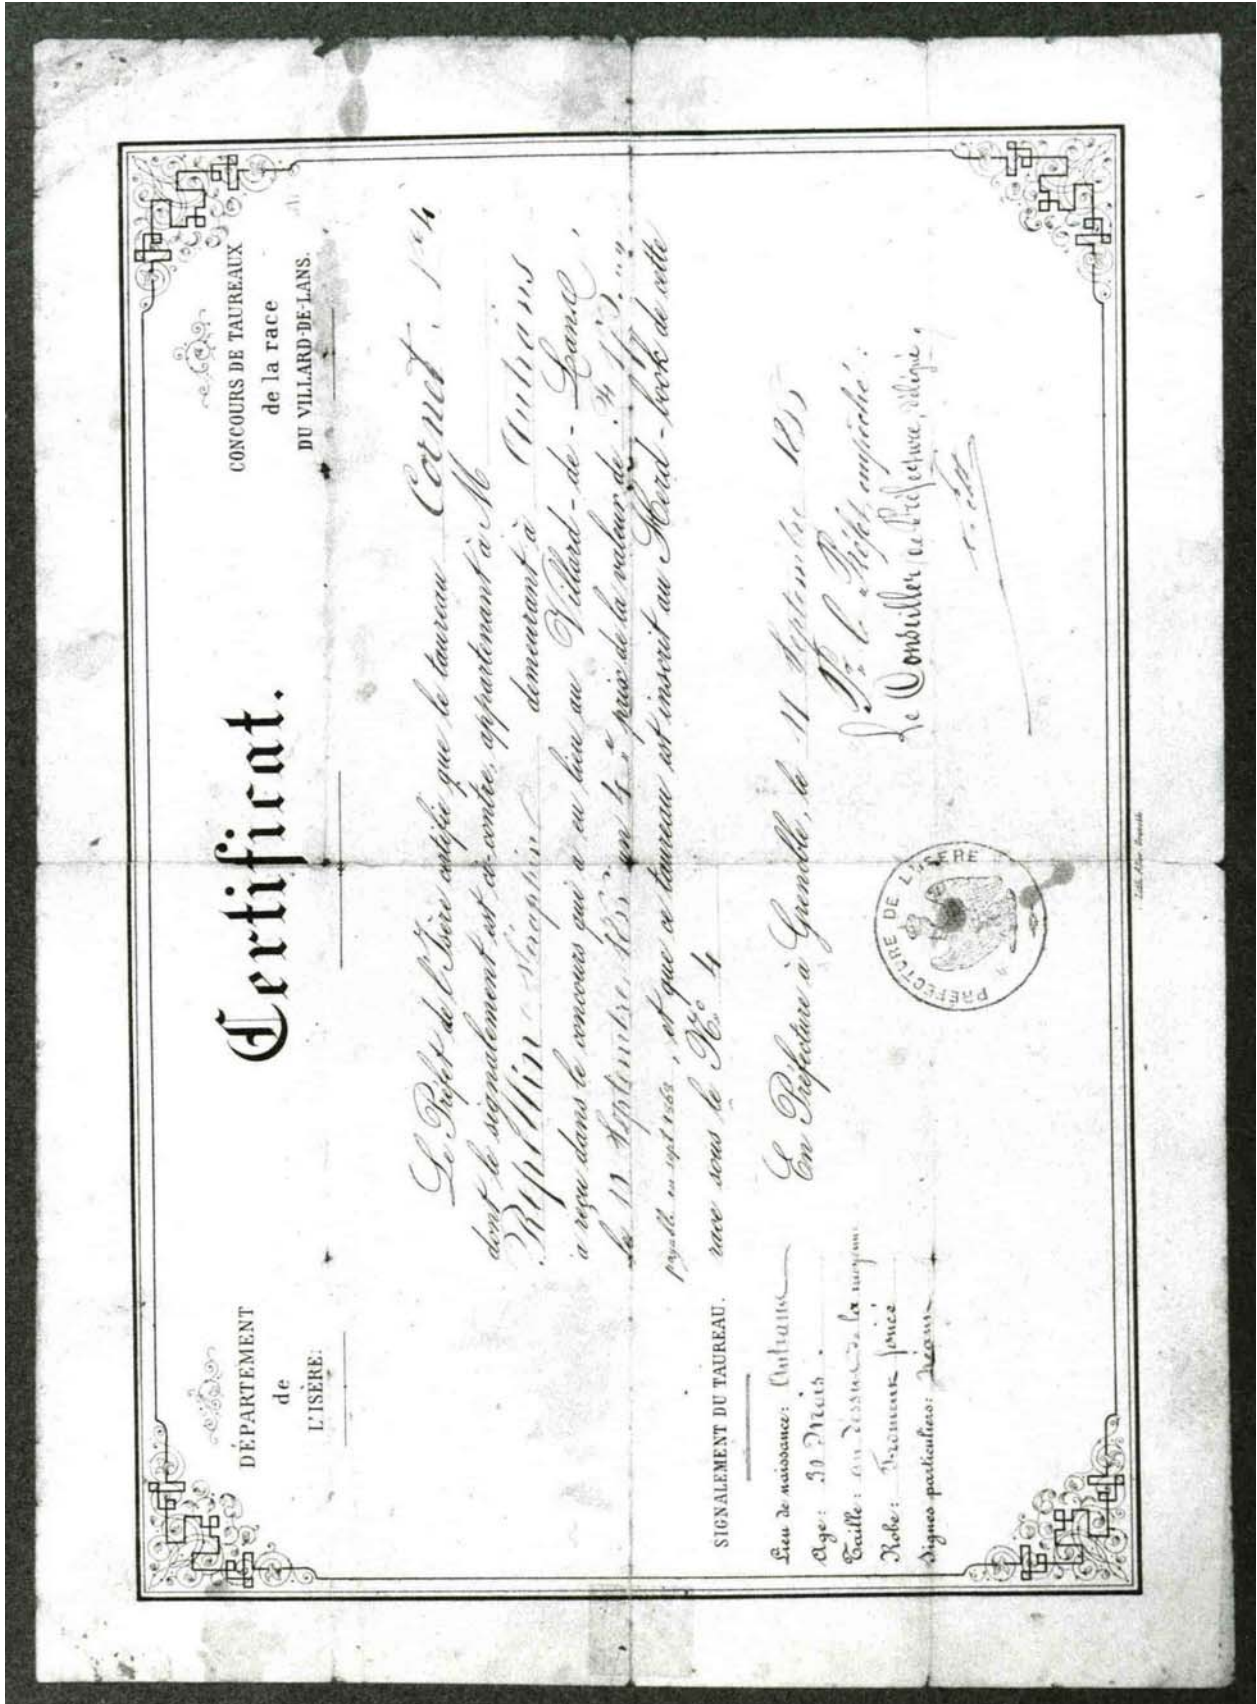 DÉPARTEMENT
de
L'ISÈRE.
Certificat.
CONCOURS DE TAUREAUX
de la race
DU VILLARD-DE-LANS.
Le Préfet de l'Isère certifie que le taureau Cornet
dont le signalement est ci-contre, appartenant à M
Repellin Séraphin demeurant à Autrans
a reçu dans le concours qui a eu lieu au Villard-de-Lans,
le Septembre un 4e prix de la valeur de
payable en sept, et que ce taureau est inscrit au Herd-book de cette
race sous le No 4
SIGNALEMENT DU TAUREAU.
Lieu de naissance: Autrans
Age: 30 Mois.
Taille: au dessus de la moyenne
Robe: Froment foncé
Signes particuliers: Néant
En Préfecture à Grenoble, le 11 Septembre
Pr le Préfet, empêché:
Le Conseiller de Préfecture, délégué,
PREFECTURE DE L'ISERE